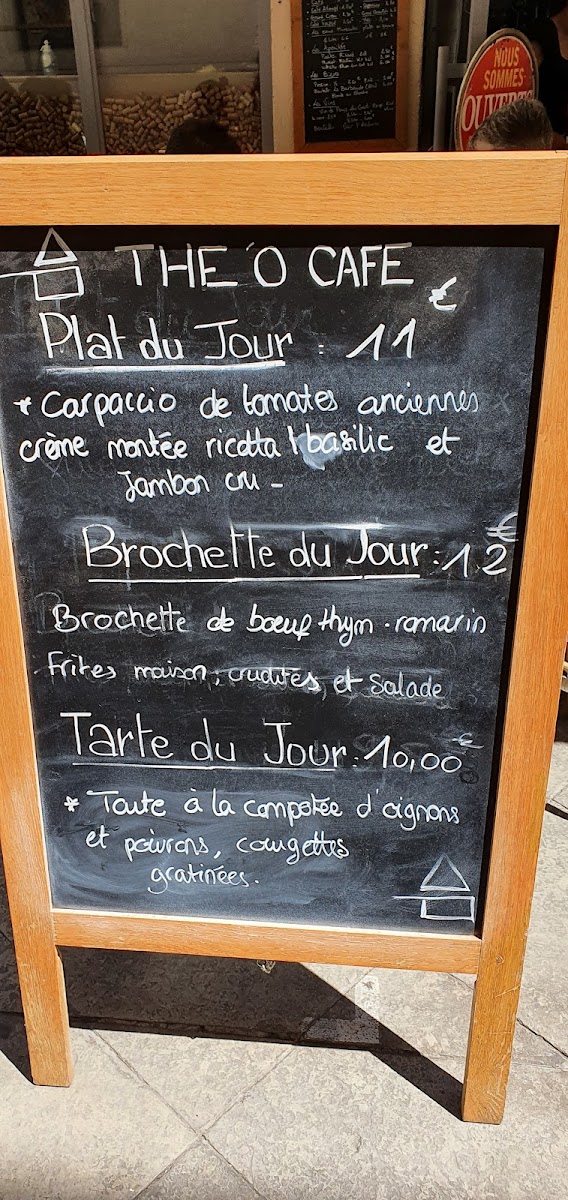 NOUS
SOMMES
OUVERTS
THE 'O CAFE
Plat du Jour : 11 €
* Carpaccio de tomates anciennes
crème montée ricotta basilic et
Jambon cru -
Brochette du Jour : 12 €
Brochette de bœuf thym . romarin
Frites maison, crudités, et Salade
Tarte du Jour : 10,00 €
* Tarte à la compotée d'oignons
et poivrons, courgettes
gratinées.